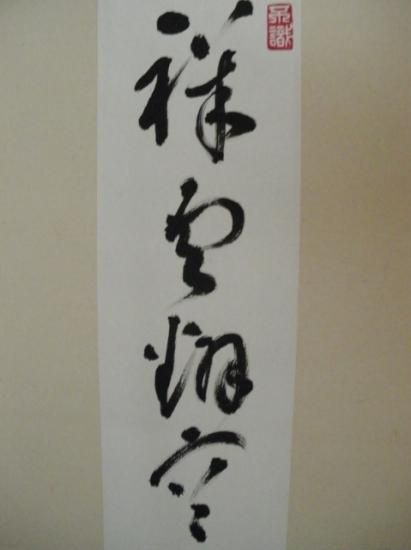 祥雲翔空